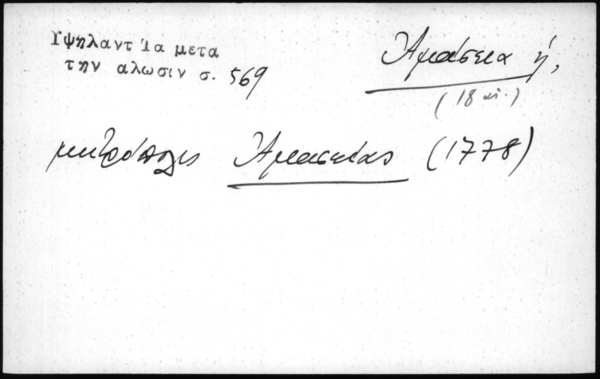 Ὑψηλαντ Τα μετα
την αλωσιν σ. 569
Ἀμάσεια ἡ,
(18 αι.)
μητρόπολις Ἀμασείας (1778)